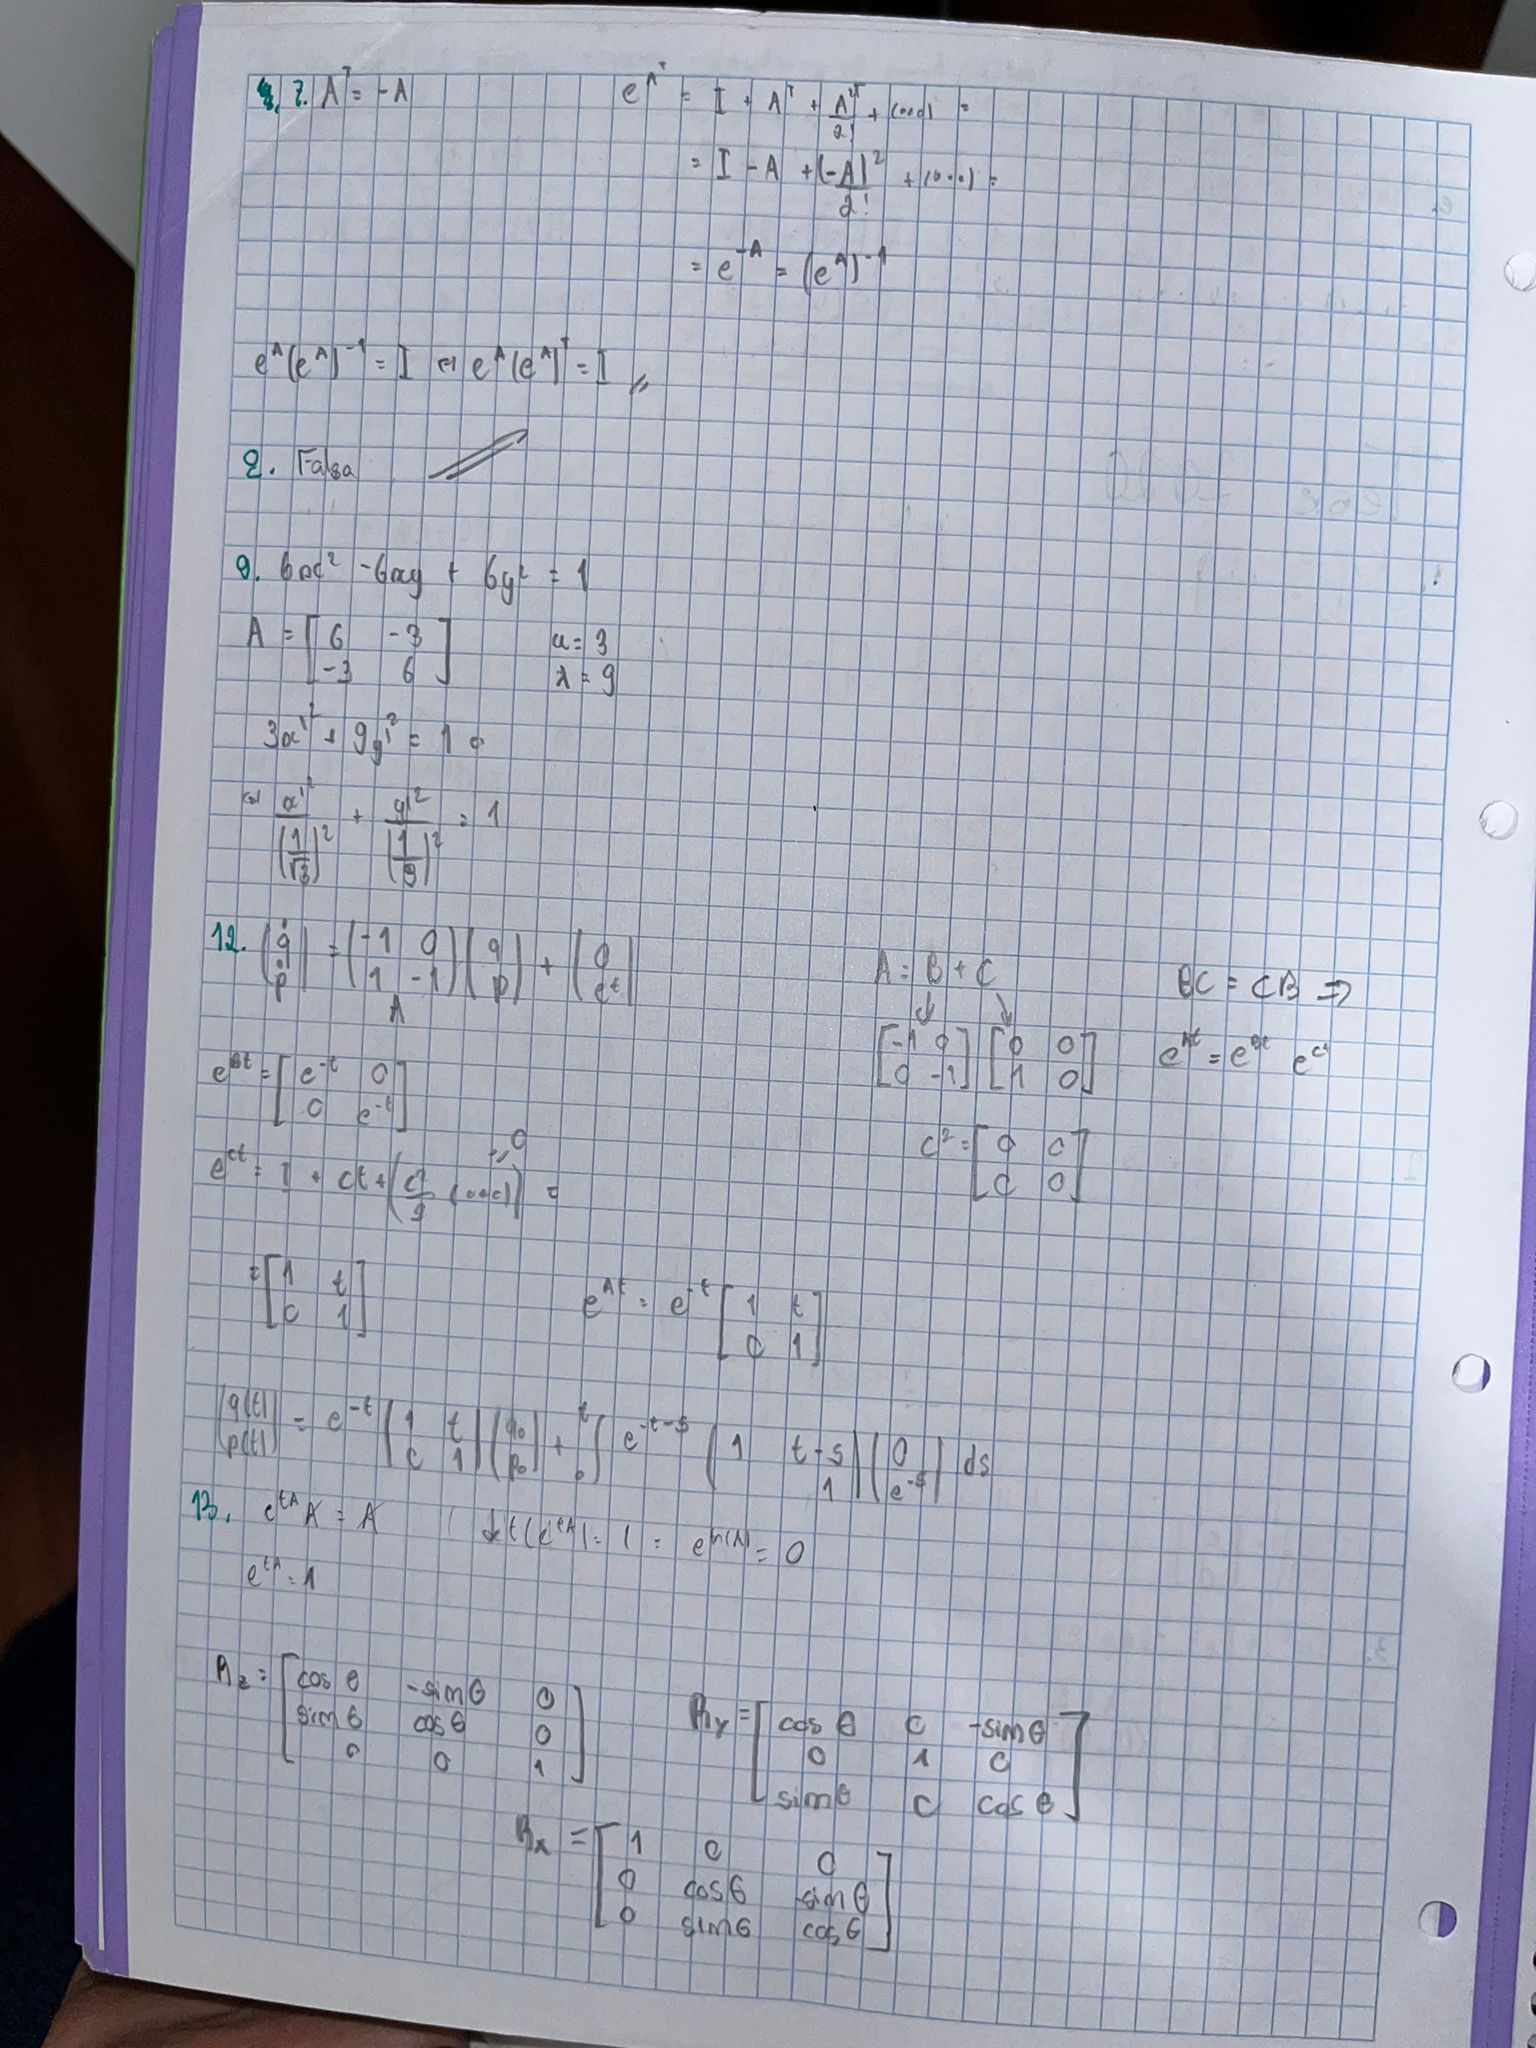 7. Aᵀ = -A
e^Aᵀ = I + Aᵀ + A²ᵀ/2! + (...) =
= I - A + (-A)²/2! + (...) =
= e^-A = (e^A)^-1
e^A (e^A)^-1 = I ⇔ e^A (e^A)ᵀ = I //
8. Falsa
9. 6x² - 6xy + 6y² = 1
A = [6 -3
-3 6]
u = 3
λ = 9
3x'² + 9y'² = 1 ⇔
⇔ x'²/(1/√3)² + y'²/(1/9)² = 1
12. (q̇ ṗ) = (-1 0
1 -1) (q p) + (0 e^t)
A
A = B + C
[-1 0
0 -1] [0 0
1 0]
BC = CB ⇒
e^At = e^Bt e^Ct
e^Bt = [e^-t 0
0 e^-t]
C² = [0 0
0 0]
= 0
e^Ct = I + Ct + (C²/2 (...)) =
= [1 t
0 1]
e^At = e^-t [1 t
0 1]
(q(t) p(t)) = e^-t (1 t
0 1) (q₀ p₀) + ₀∫ᵗ e^-t-s (1 t-s
1) (0 e^-s) ds
13. e^tA A = A
det(e^tA) = 1 = e^tr(A) = 0
e^tA = 1
Rz = [cos θ -sin θ 0
sin θ cos θ 0
0 0 1]
Ry = [cos θ 0 -sin θ
0 1 0
sin θ 0 cos θ]
Rx = [1 0 0
0 cos θ -sin θ
0 sin θ cos θ]